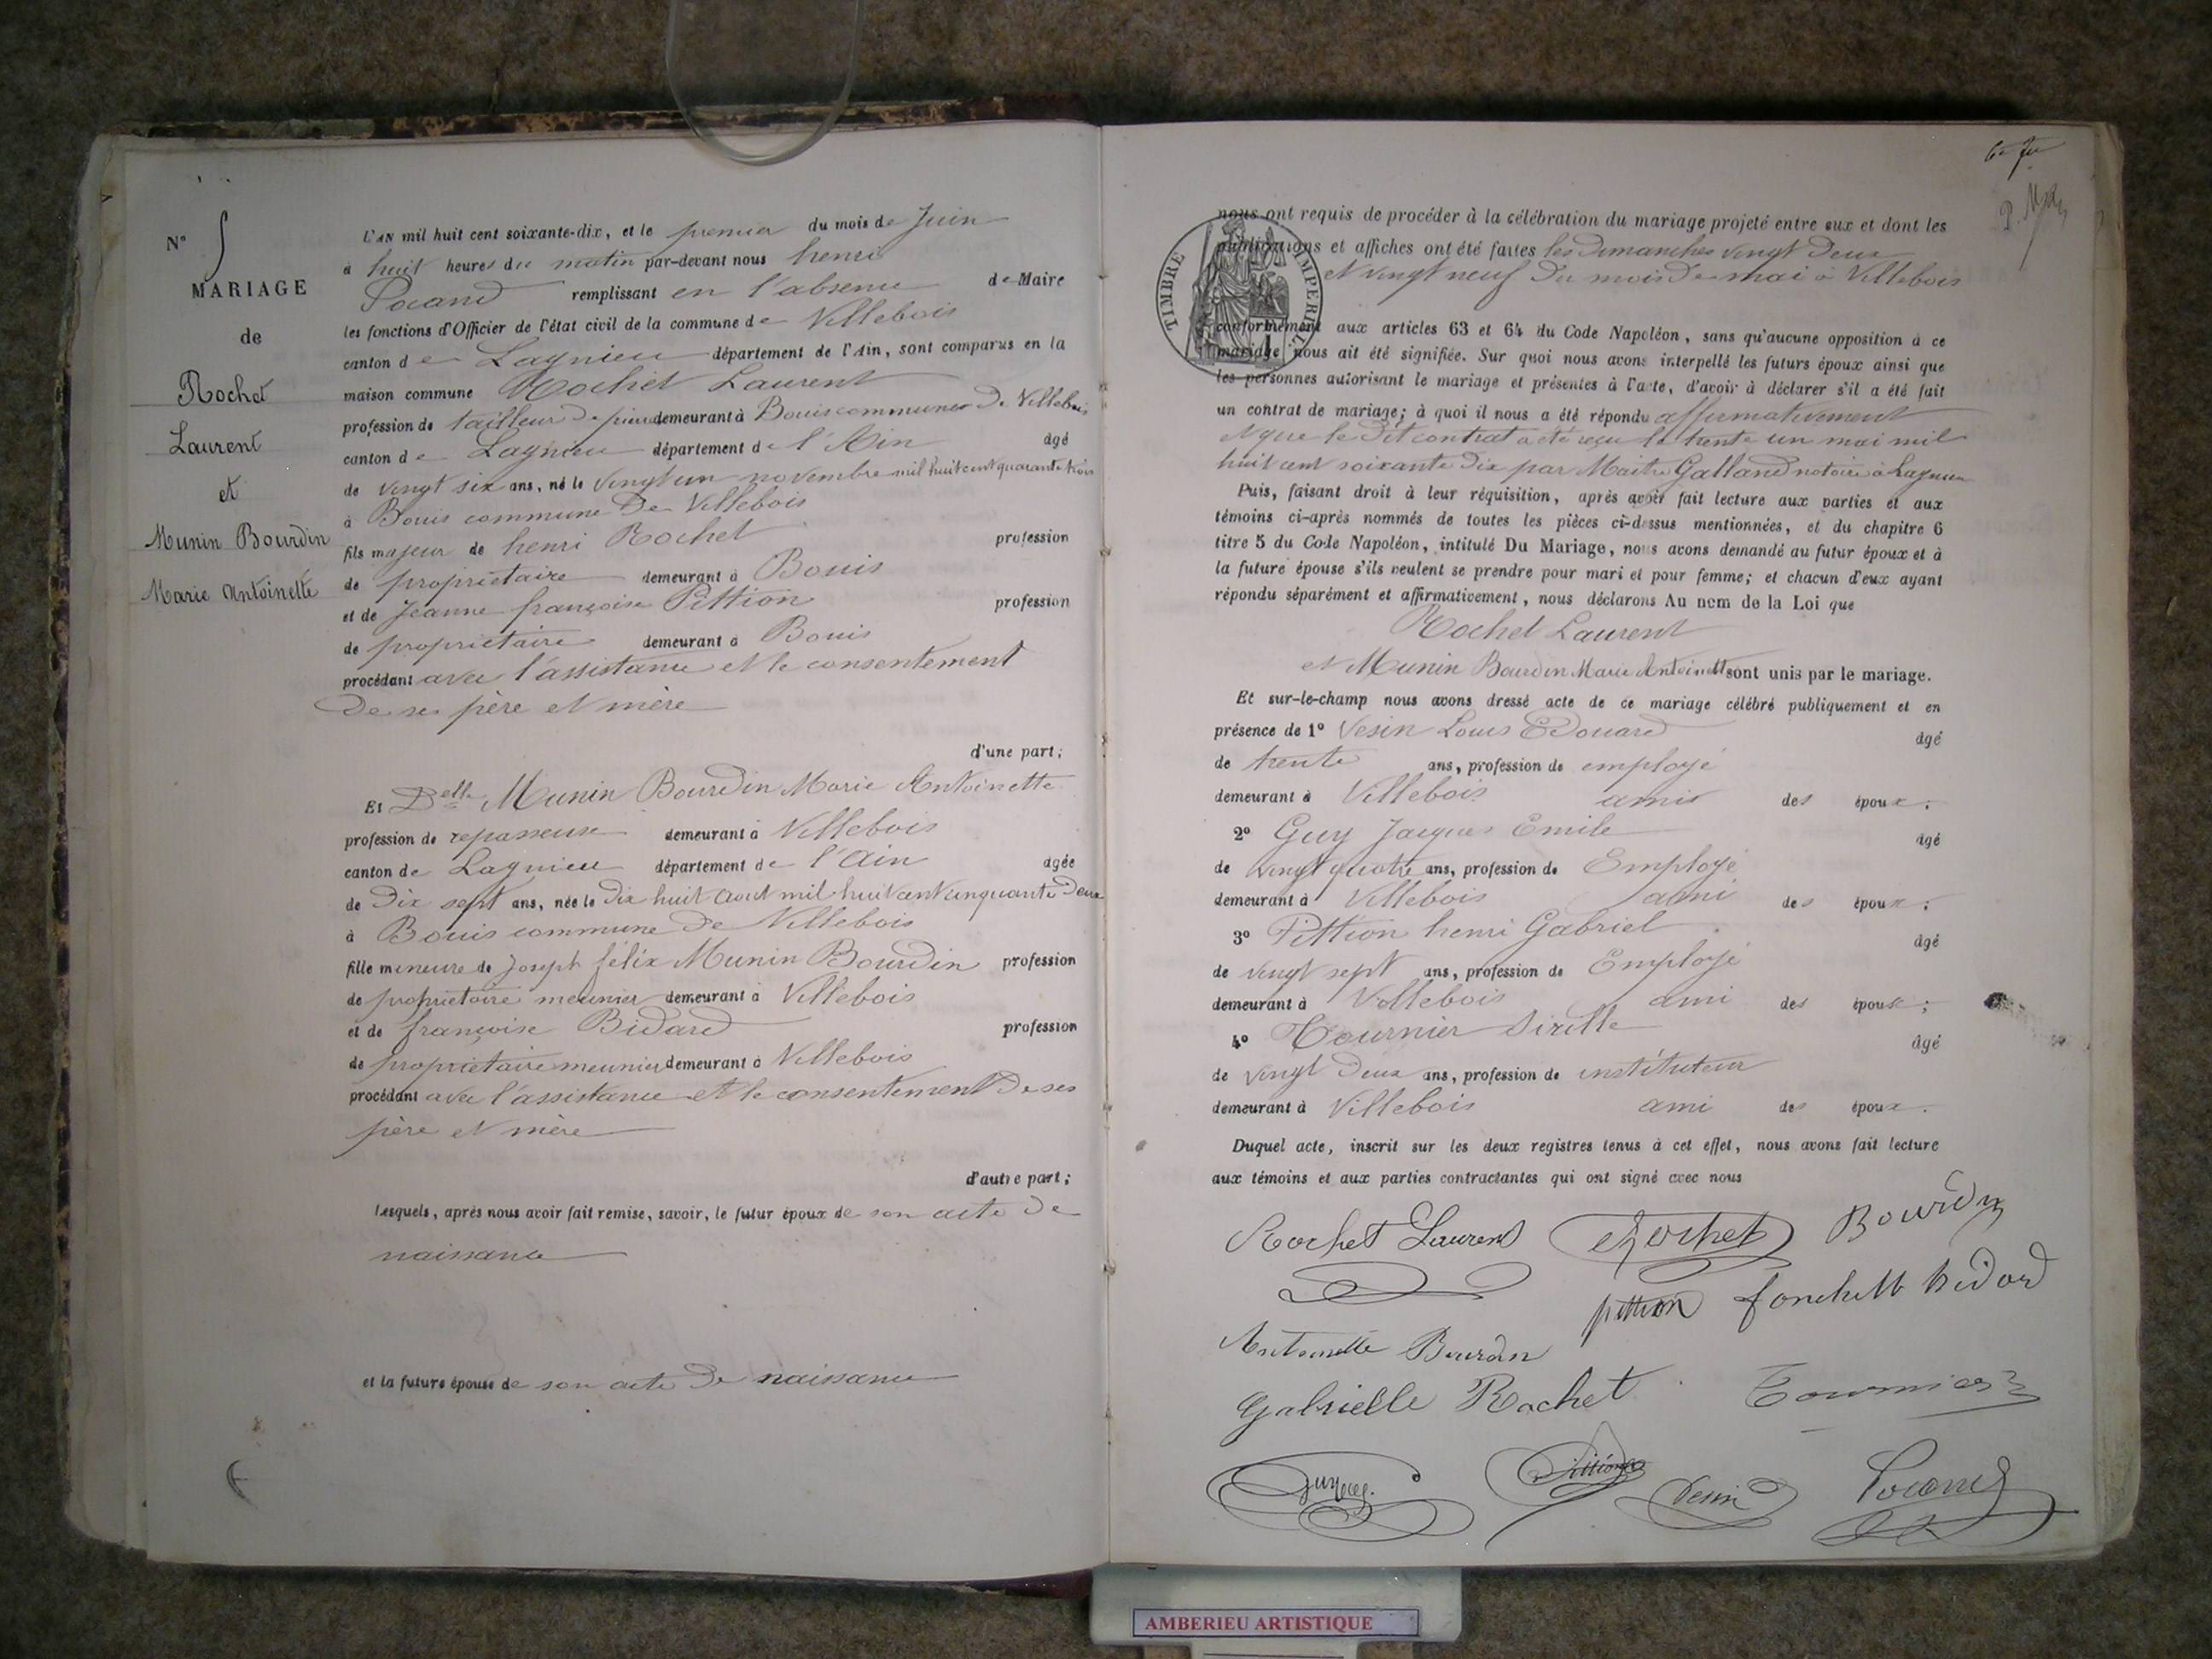 N° 5
MARIAGE
de
Rochet
Laurent
et
Munin Bourdin
Marie Antoinette
L'AN mil huit cent soixante-dix, et le premier du mois de Juin
à huit heures du matin par-devant nous henri
Pocand remplissant en l'absence de Maire
les fonctions d'Officier de l'état civil de la commune de Villebois
canton de Lagnieu département de l'Ain, sont comparus en la
maison commune Rochet Laurent
profession de tailleur de pierre demeurant à Bouis commune de Villebois
canton de Lagnieu département de l'Ain âgé
de vingt six ans, né le vingt un novembre mil huit cent quarante trois
à Bouis commune de Villebois
fils majeur de henri Rochet profession
de propriétaire demeurant à Bouis
et de Jeanne françoise Pittion profession
de propriétaire demeurant à Bouis
procédant avec l'assistance et le consentement
de ses père et mère
d'une part;
Et Delle Munin Bourdin Marie Antoinette
profession de repasseuse demeurant à Villebois
canton de Lagnieu département de l'Ain agée
de dix sept ans, née le dix huit aout mil huit cent cinquante deux
à Bouis commune de Villebois
fille mineure de Joseph félix Munin Bourdin profession
de propriétaire meunier demeurant à Villebois
et de françoise Bidard profession
de propriétaire meunier demeurant à Villebois
procédant avec l'assistance et le consentement de ses
père et mère
d'autre part;
Lesquels, après nous avoir fait remise, savoir, le futur époux de son acte de
naissance
et la future épouse de son acte de naissance
nous ont requis de procéder à la célébration du mariage projeté entre eux et dont les
publications et affiches ont été faites les dimanches vingt deux
et vingt neuf du mois de mai à Villebois
TIMBRE IMPERIAL
conformément aux articles 63 et 64 du Code Napoléon, sans qu'aucune opposition à ce
mariage nous ait été signifiée. Sur quoi nous avons interpellé les futurs époux ainsi que
les personnes autorisant le mariage et présentes à l'acte, d'avoir à déclarer s'il a été fait
un contrat de mariage; à quoi il nous a été répondu affirmativement
et que le dit contrat a été reçu le trente un mai mil
huit cent soixante dix par Maitre Galland notaire à Lagnieu
Puis, faisant droit à leur réquisition, après avoir fait lecture aux parties et aux
témoins ci-après nommés de toutes les pièces ci-dessus mentionnées, et du chapitre 6
titre 5 du Code Napoléon, intitulé Du Mariage, nous avons demandé au futur époux et à
la future épouse s'ils veulent se prendre pour mari et pour femme; et chacun d'eux ayant
répondu séparément et affirmativement, nous déclarons Au nom de la Loi que
Rochet Laurent
et Munin Bourdin Marie Antoinette sont unis par le mariage.
Et sur-le-champ nous avons dressé acte de ce mariage célébré publiquement et en
présence de 1° Vesin Louis Edouard âgé
de trente ans, profession de employé
demeurant à Villebois ami des époux;
2° Guy Jacques Emile âgé
de vingt quatre ans, profession de Employé
demeurant à Villebois ami des époux;
3° Pittion henri Gabriel âgé
de vingt sept ans, profession de Employé
demeurant à Villebois ami des époux;
4° Tournier Sixte âgé
de vingt deux ans, profession de instituteur
demeurant à Villebois ami des époux.
Duquel acte, inscrit sur les deux registres tenus à cet effet, nous avons fait lecture
aux témoins et aux parties contractantes qui ont signé avec nous
Rochet Laurent Rochet Bourdin
pittion bidard
Antoinette Bourdin
Gabrielle Rochet Tournier
Guy Pittion Vesin Pocand
AMBERIEU ARTISTIQUE